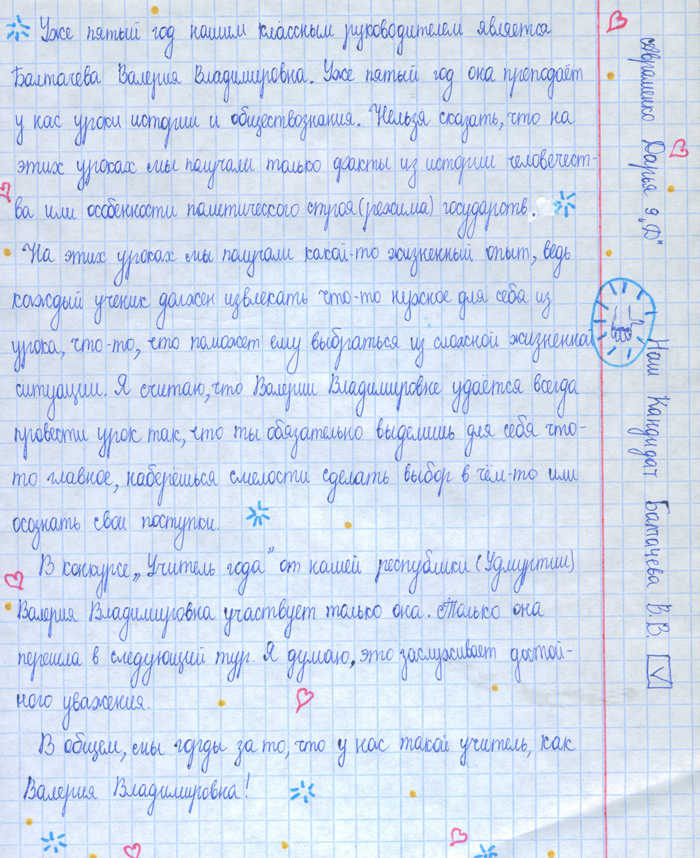 Уже пятый год нашим классным руководителем является
Балтачева Валерия Владимировна. Уже пятый год она преподаёт
у нас уроки истории и обществознания. Нельзя сказать, что на
этих уроках мы получали только факты из истории человечест-
ва или особенности политического строя (режима) государств.
На этих уроках мы получали какой-то жизненный опыт, ведь
каждый ученик должен извлекать что-то нужное для себя из
урока, что-то, что поможет ему выбраться из сложной жизненной
ситуации. Я считаю, что Валерии Владимировне удаётся всегда
провести урок так, что ты обязательно выделишь для себя что-
то главное, наберёшься смелости сделать выбор в чём-то или
осознать свои поступки.
В конкурсе „Учитель года" от нашей республики (Удмуртии)
Валерия Владимировна участвует только она. Только она
перешла в следующий тур. Я думаю, это заслуживает достой-
ного уважения.
В общем, мы горды за то, что у нас такой учитель, как
Валерия Владимировна!
Авраменко Дарья 9 „Д"
Наш Кандидат Балтачева В.В. V